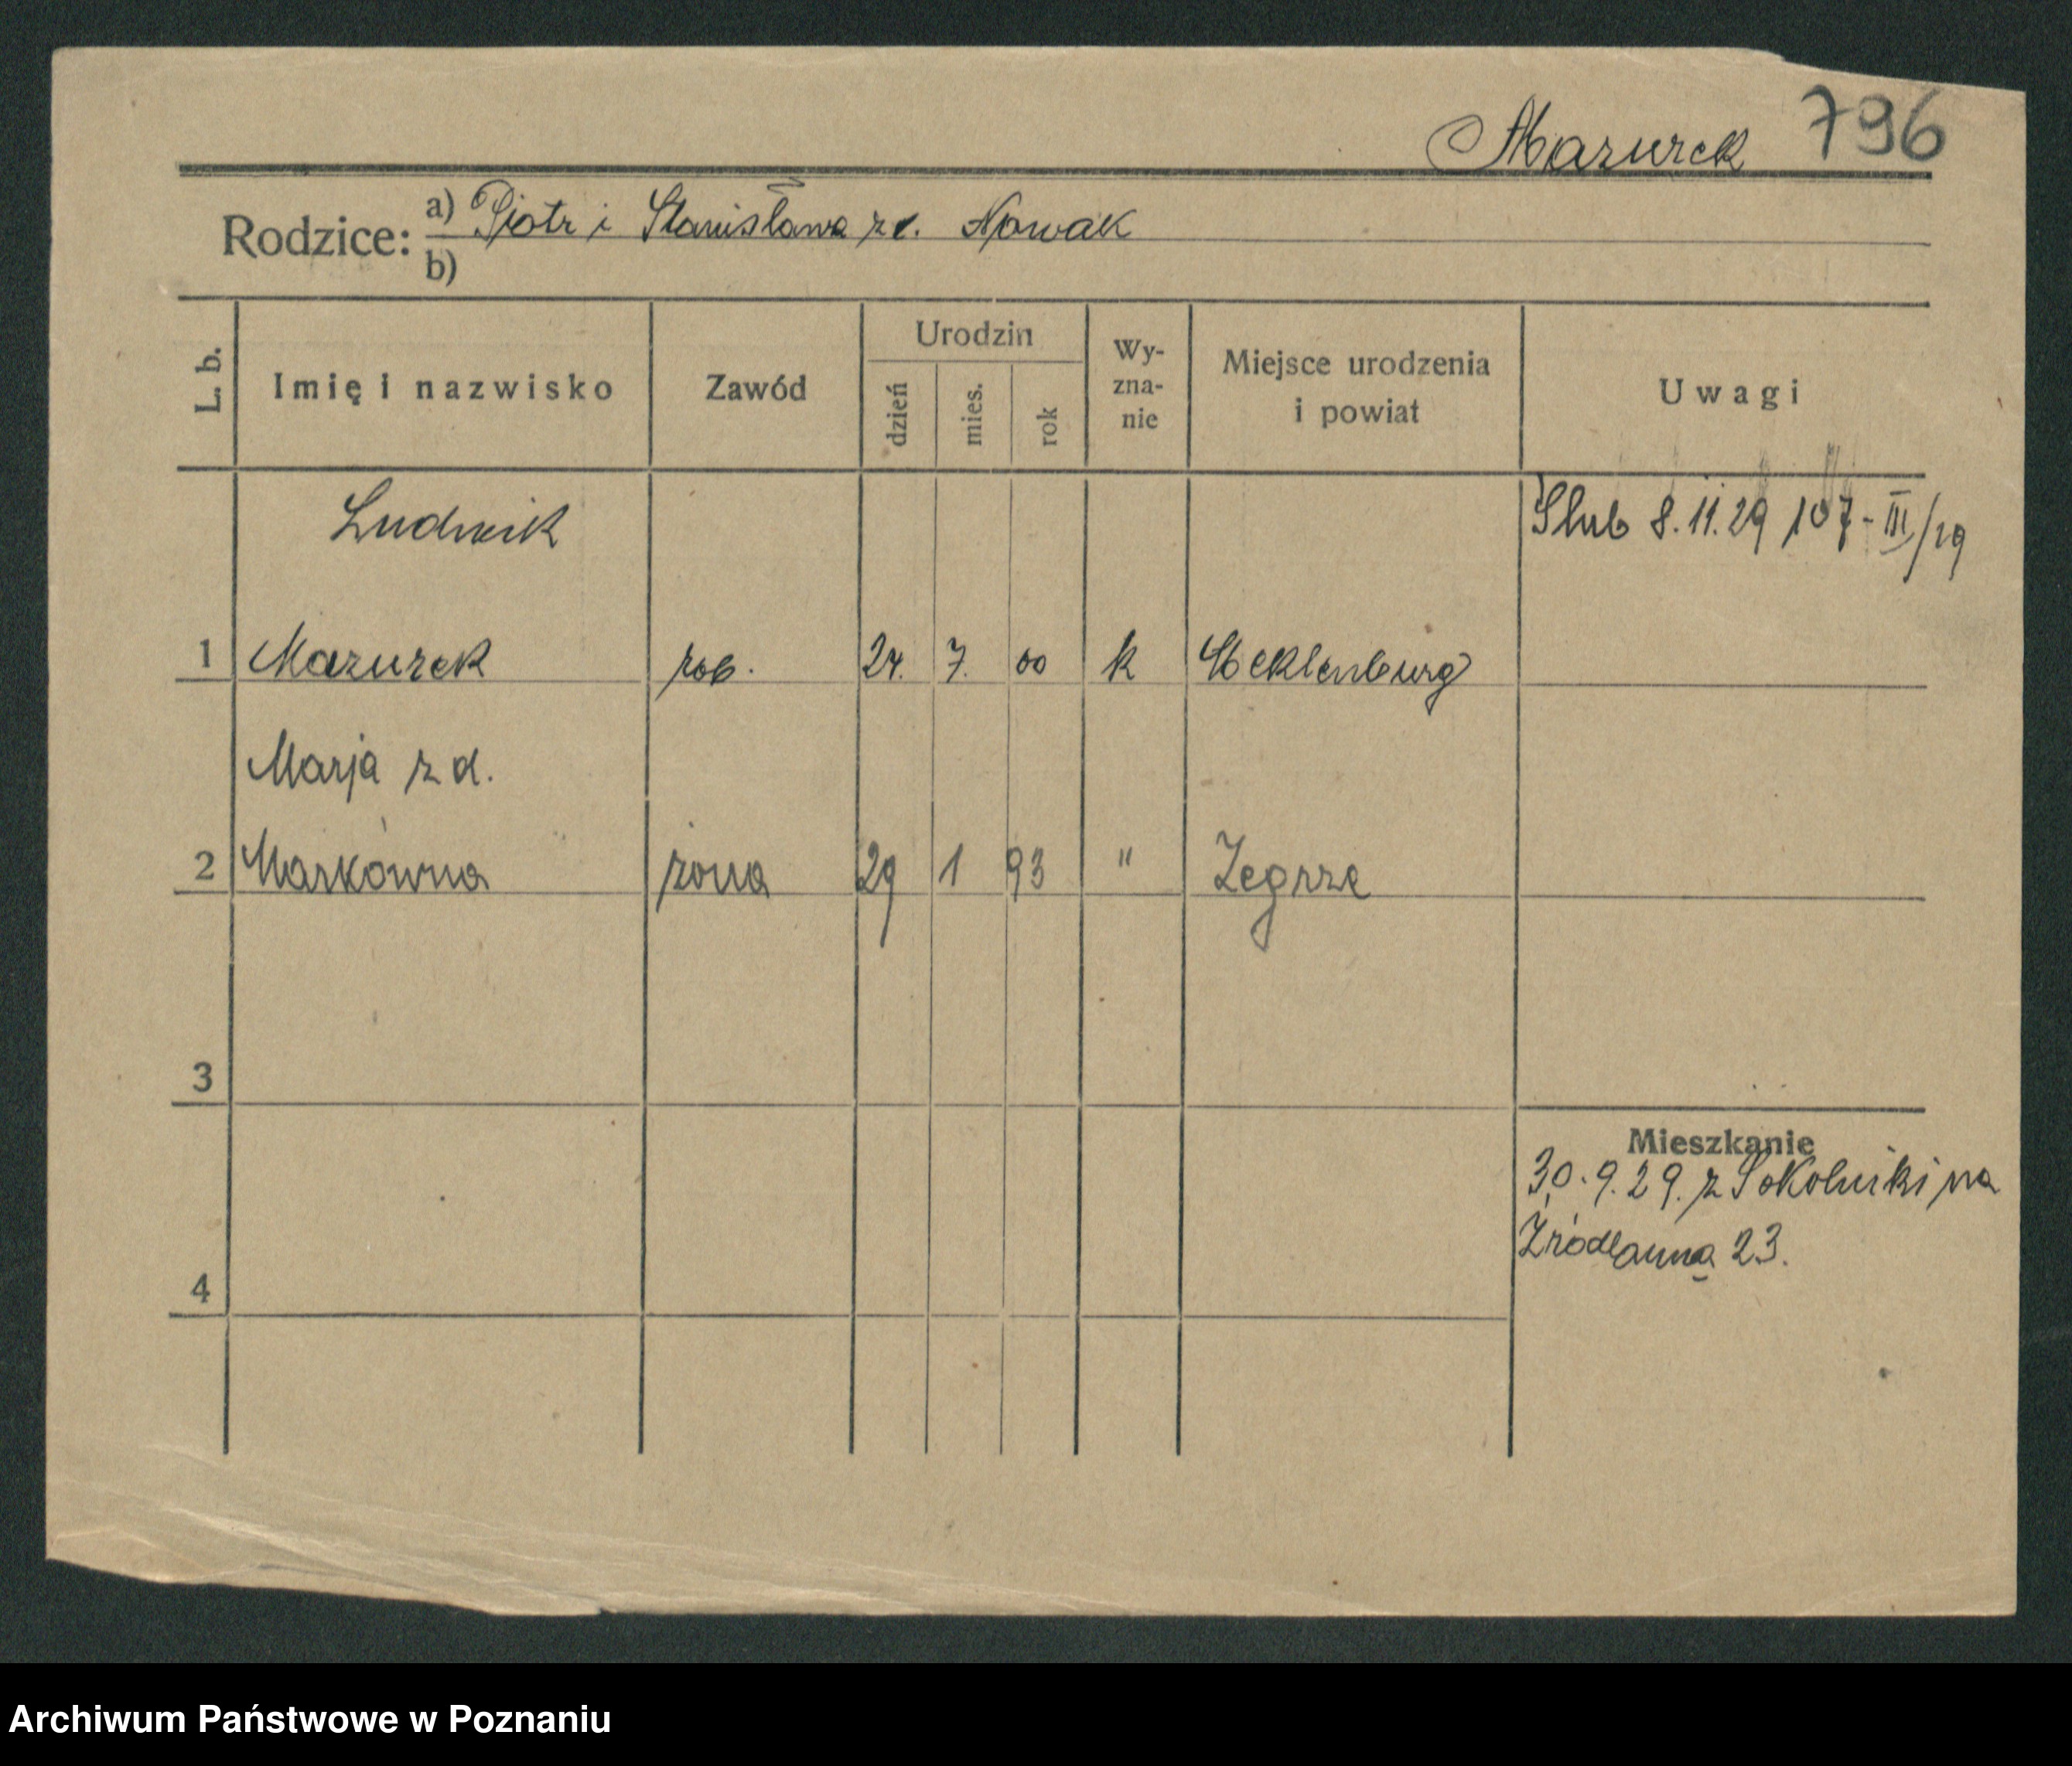 Mazurek 796
Rodzice: a) Piotr i Stanisława z d. Nowak
b)
L. b. Imię i nazwisko Zawód Urodzin dzień mies. rok Wy-zna-nie Miejsce urodzenia i powiat Uwagi
Ludwik Ślub 8.11.29 107-III/29
1 Mazurek rob. 24. 7. 00 k Meklenburg
Marja z d.
2 Markówna żona 29 1 93 " Zegrze
3
Mieszkanie
30.9.29. z Sokolniki na
Źródlanna 23.
4
Archiwum Państwowe w Poznaniu